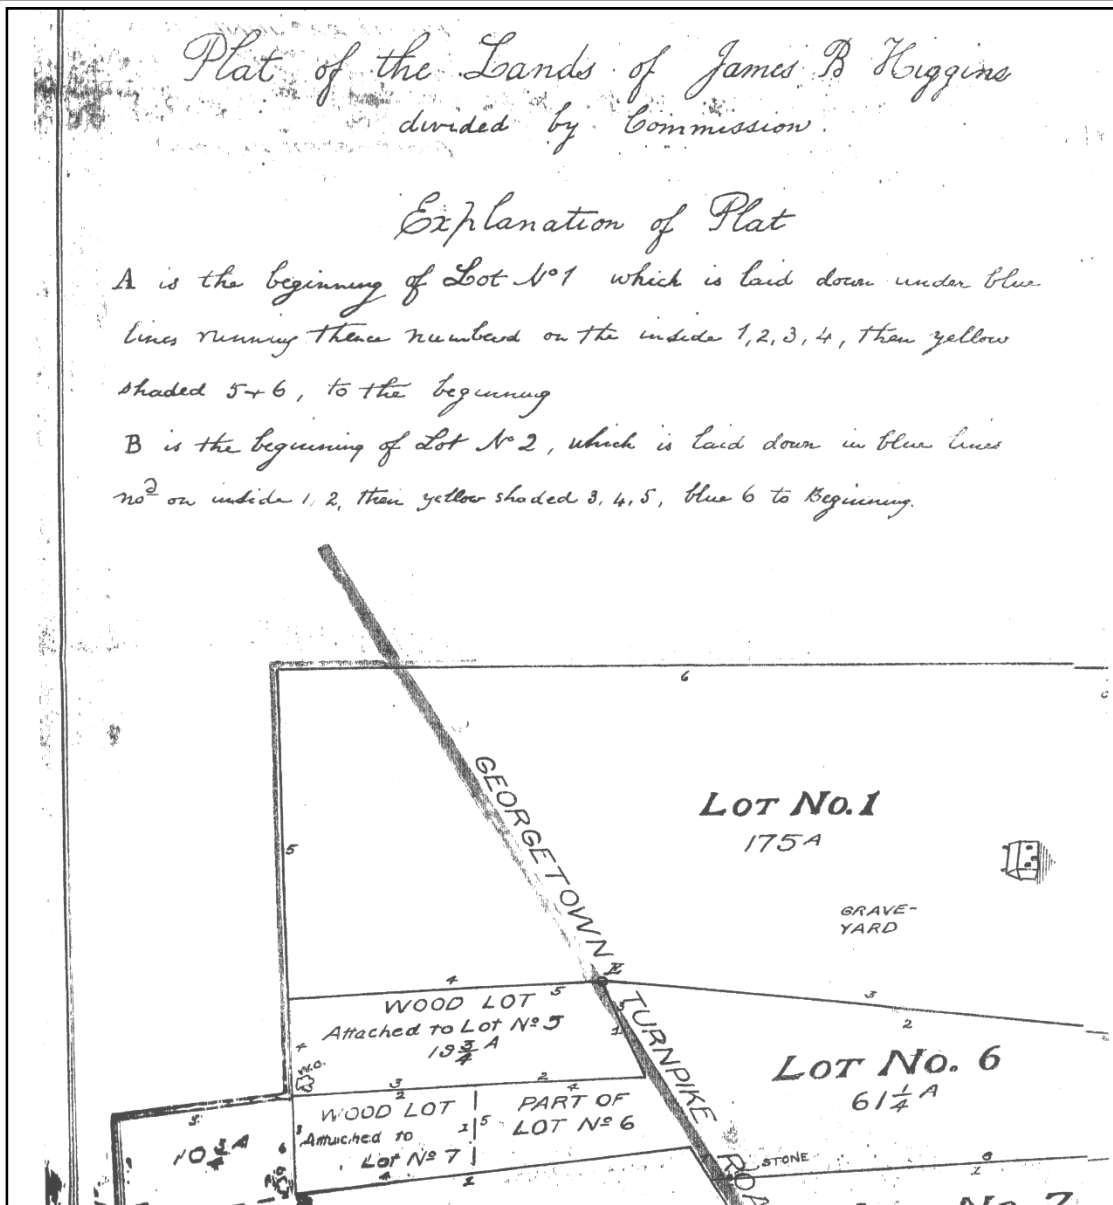 Plat of the Lands of James B Higgins
divided by Commission.
Explanation of Plat
A is the beginning of Lot No 1 which is laid down under blue
lines running thence numbered on the inside 1, 2, 3, 4, then yellow
shaded 5 + 6, to the beginning
B is the beginning of Lot No 2, which is laid down in blue lines
nod on inside 1, 2, then yellow shaded 3, 4, 5, blue 6 to Beginning.
6
GEORGETOWN TURNPIKE ROA
LOT NO. 1
175 A
5
GRAVE-
YARD
4
5
E
3
2
WOOD LOT
Attached to Lot No 5
19 3/4 A
1
4
W.O.
LOT NO. 6
61 1/4 A
3
2
2
4
WOOD LOT
Attached to
Lot No 7
1
5
PART OF
LOT No 6
5
10 3/4 A
6
3
4
1
STONE
6
1
No. 7